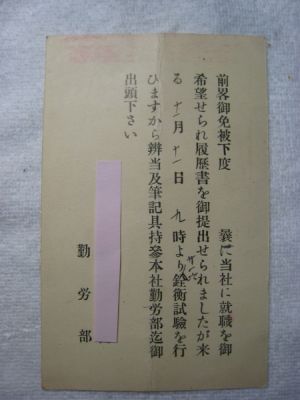 前畧御免被下度　曩に当社に就職を御
希望せられ履歴書を御提出せられましたが来
る十二月十一日九時より銓衡試験を行
ひますから辨当及筆記具持参本社勤労部迄御
出頭下さい
勤労部